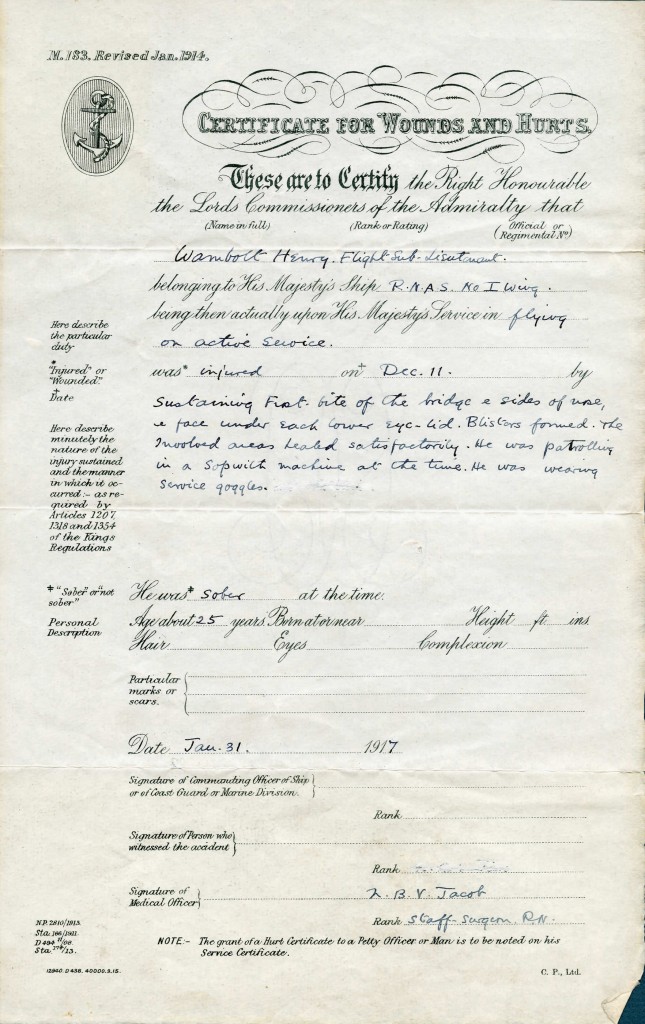 M. 183. Revised Jan. 1914.
CERTIFICATE FOR WOUNDS AND HURTS.
These are to Certify the Right Honourable
the Lords Commissioners of the Admiralty that
(Name in full) (Rank or Rating) (Official or Regimental No)
Wambolt Henry. Flight Sub-Lieutenant.
belonging to His Majesty's Ship R.N.A.S. No I Wing.
being then actually upon His Majesty's Service in flying
Here describe
the particular
duty
on active Service.
*
"Injured" or
"Wounded."
was* injured on† Dec. 11. by
†
Date
Sustaining Frost-bite of the bridge & sides of nose,
& face under each lower eye-lid. Blisters formed. The
Involved areas healed satisfactorily. He was patrolling
in a Sopwith machine at the time. He was wearing
Service goggles.
Here describe
minutely the
nature of the
injury sustained
and the manner
in which it oc-
curred :- as re-
quired by
Articles 1207,
1318 and 1354
of the Kings
Regulations
* "Sober" or "not
sober"
He was* Sober at the time.
Personal
Description
Age about 25 years Born at or near Height ft ins
Hair Eyes Complexion
Particular
marks or
scars.
Date Jan. 31. 1917
Signature of Commanding Officer of Ship
or of Coast Guard or Marine Division.
Rank
Signature of Person who
witnessed the accident
Rank
Signature of
Medical Officer
B. V. Jacob
Rank Staff-Surgeon. R.N.
N.P. 2810/1913.
Sta. 166/1911.
Sta.
NOTE:- The grant of a Hurt Certificate to a Petty Officer or Man is to be noted on his
Service Certificate.
12940. D 458. 40000. 9. 15.
C. P., Ltd.